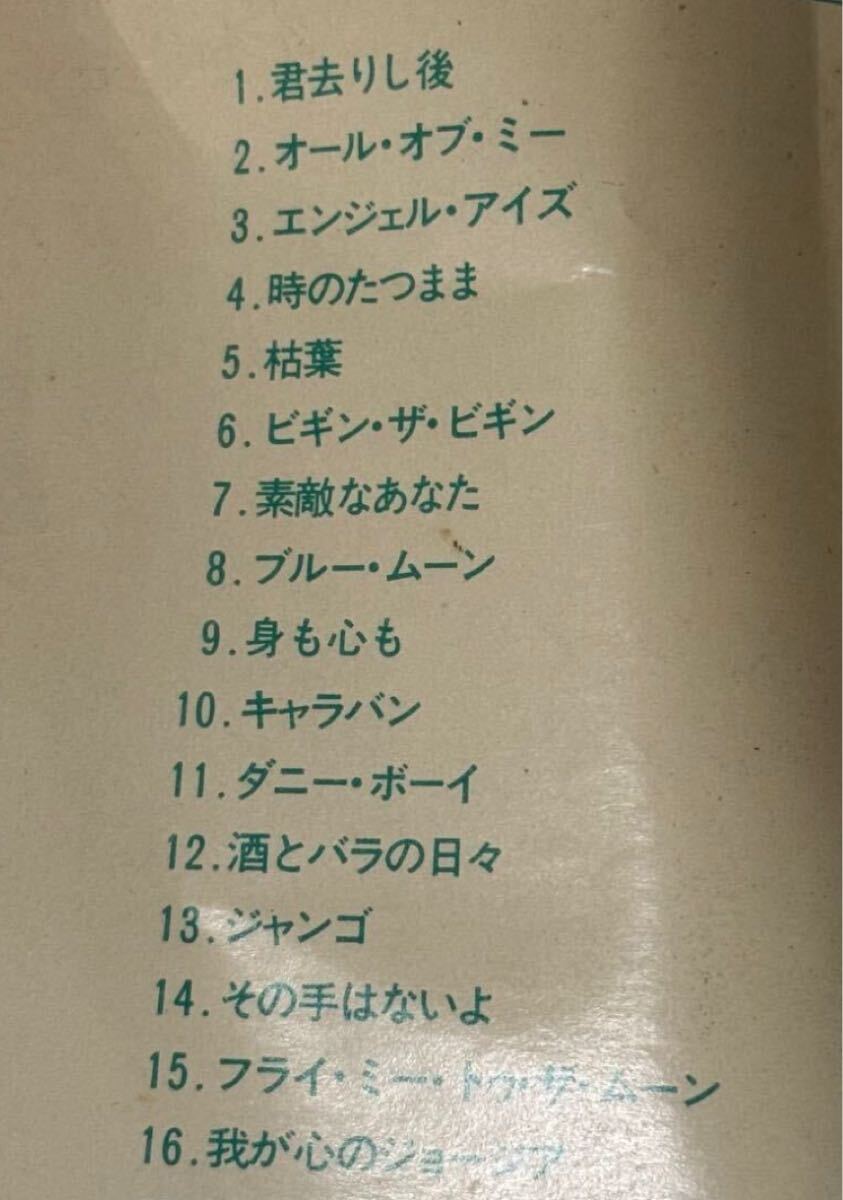 1.君去りし後
2.オール・オブ・ミー
3.エンジェル・アイズ
4.時のたつまま
5.枯葉
6.ビギン・ザ・ビギン
7.素敵なあなた
8.ブルー・ムーン
9.身も心も
10.キャラバン
11.ダニー・ボーイ
12.酒とバラの日々
13.ジャンゴ
14.その手はないよ
15.フライ・ミー・トゥ・ザ・ムーン
16.我が心のジョージア